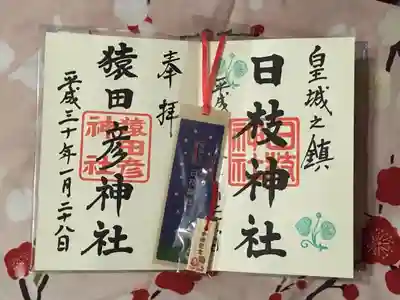 皇城之鎮
日枝神社
日枝神社
平成
奉拝
猿田彦神社
猿田彦神社
平成三十年一月二十八日
日枝神社